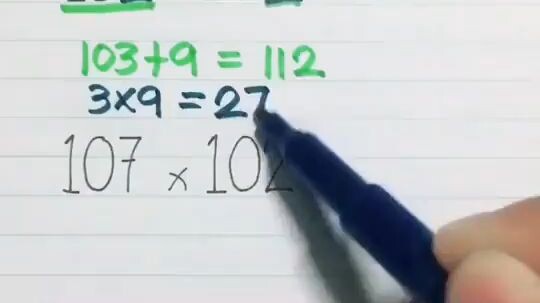 103+9 = 112
3×9 = 27
107 × 102